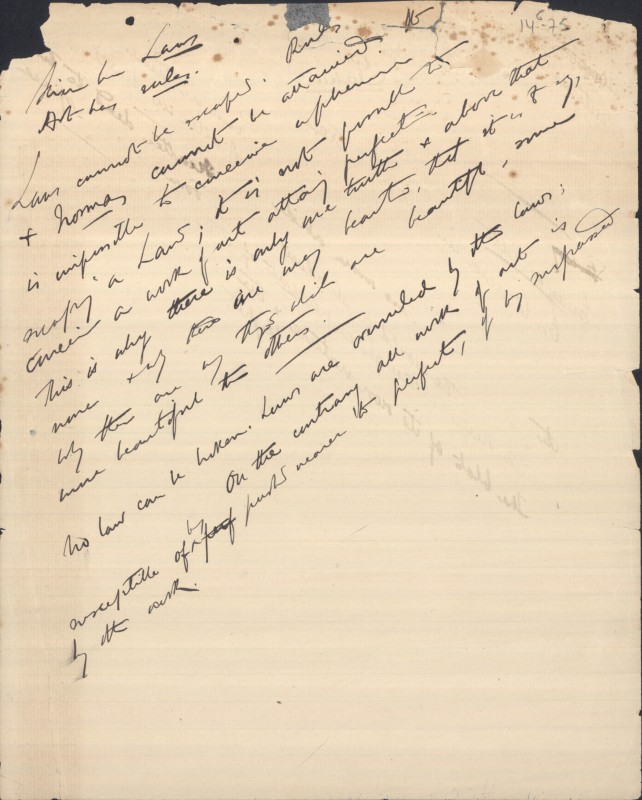 14 6-75
Laws
Art has rules.
Laws cannot be escaped. Rules
& Normas cannot be attained. It
is impossible to conceive a phenomenon
escaping a Law; it is not possible to
conceive a work of art attaining perfection
This is why there is only one truth & above that
none & why there are many beauties, that it is to say,
why there are things that are beautiful, some
more beautiful than others.
No law can be broken. Laws are by the laws;
On the contrary all work of art is
susceptible of by being pushed nearer to perfect, of being surpassed
by the work.
The blot of its own